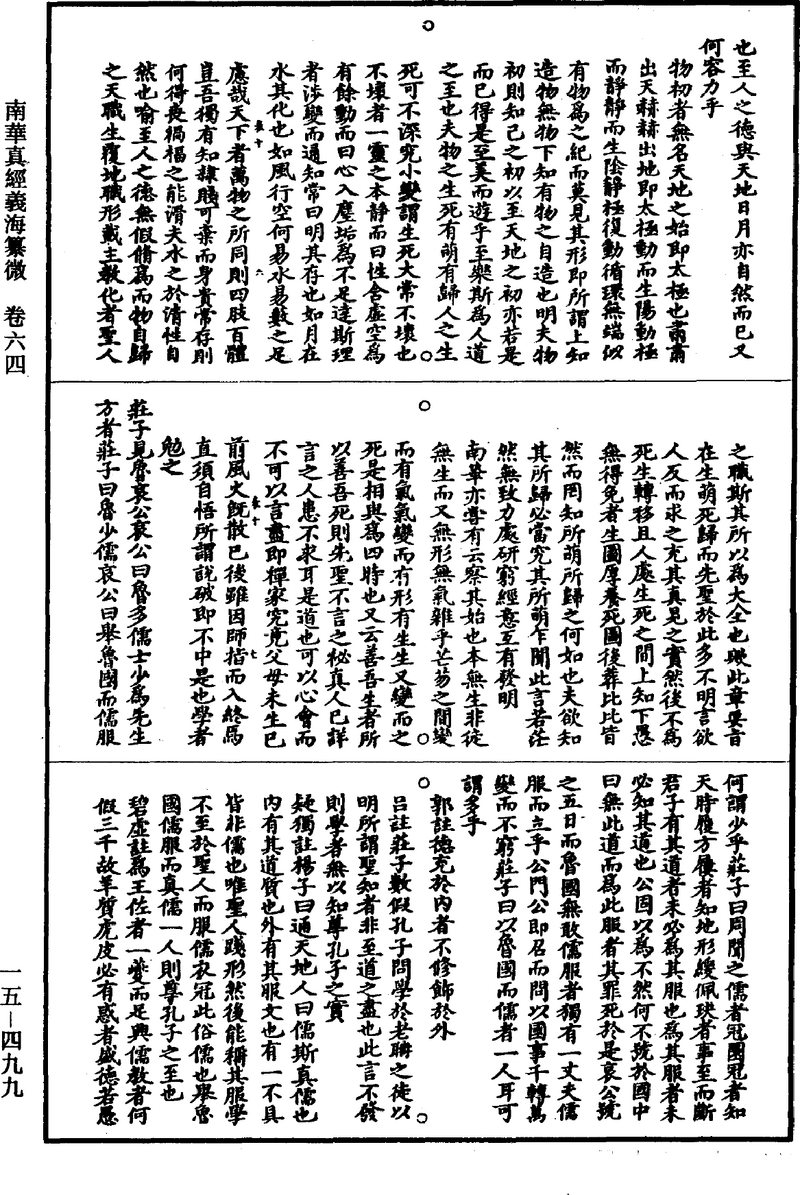 南華真經義海纂微　卷六四
一五—四九九
也至人之德與天地日月亦自然而已又
何容力乎
物初者無名天地之始即太極也肅肅
出天赫赫出地即太極動而生陽動極
而靜靜而生陰靜極復動循環無端似
有物爲之紀而莫見其形即所謂上知
造物無物下知有物之自造也明夫物
初則知己之初以至天地之初亦若是
而已得是至美而遊乎至樂斯爲人道
之至也夫物之生死有萌有歸人之生
死可不深究小變謂生死大常不壞也
不壞者一靈之本靜而曰性含虛空爲
有餘動而曰心入塵垢爲不足達斯理
者涉變而通知常曰明其存也如月在
水其化也如風行空何易水易藪之足
慮哉天下者萬物之所同則四肢百體
豈吾獨有知隸賤可棄而身貴常存則
何得喪禍福之能滑夫水之於清性自
然也喻至人之德無假脩爲而物自歸
之天職生覆地職形載主教化者聖人
之職斯其所以爲大全也歟此章要旨
在生萌死歸而先聖於此多不明言欲
人反而求之充其真見之實然後不爲
死生轉移且人處生死之間上知下愚
無得免者生圖厚養死圖後葬比比皆
然而罔知所萌所歸之何如也夫欲知
其所歸必當究其所萌乍聞此言若茫
然無致力處研窮經意互有發明
南華亦嘗有云察其始也本無生非徒
無生而又無形無氣雜乎芒芴之間變
而有氣氣變而有形有生生又變而之
死是相與爲四時也又云善吾生者所
以善吾死則先聖不言之祕真人已詳
言之人患不求耳是道也可以心會而
不可以言盡即禪家究竟父母未生已
前風火既散已後雖因師指而入終焉
直須自悟所謂說破即不中是也學者
勉之
莊子見魯哀公哀公曰魯多儒士少爲先生
方者莊子曰魯少儒哀公曰舉魯國而儒服
何謂少乎莊子曰周聞之儒者冠圜冠者知
天時履方屨者知地形緩佩玦者事至而斷
君子有其道者未必爲其服也爲其服者未
必知其道也公固以爲不然何不號於國中
曰無此道而爲此服者其罪死於是哀公號
之五日而魯國無敢儒服者獨有一丈夫儒
服而立乎公門公即召而問以國事千轉萬
變而不窮莊子曰以魯國而儒者一人耳可
謂多乎
郭註德充於內者不修飾於外
呂註莊子數假孔子問學於老聃之徒以
明所謂聖知者非至道之盡也此言不發
則學者無以知尊孔子之實
疑獨註楊子曰通天地人曰儒斯真儒也
內有其道質也外有其服文也有一不具
皆非儒也唯聖人踐形然後能稱其服學
不至於聖人而服儒衣冠此俗儒也舉魯
國儒服而真儒一人則尊孔子之至也
碧虛註爲王佐者一夔而足興儒教者何
假三千故羊質虎皮必有惑者盛德若愚